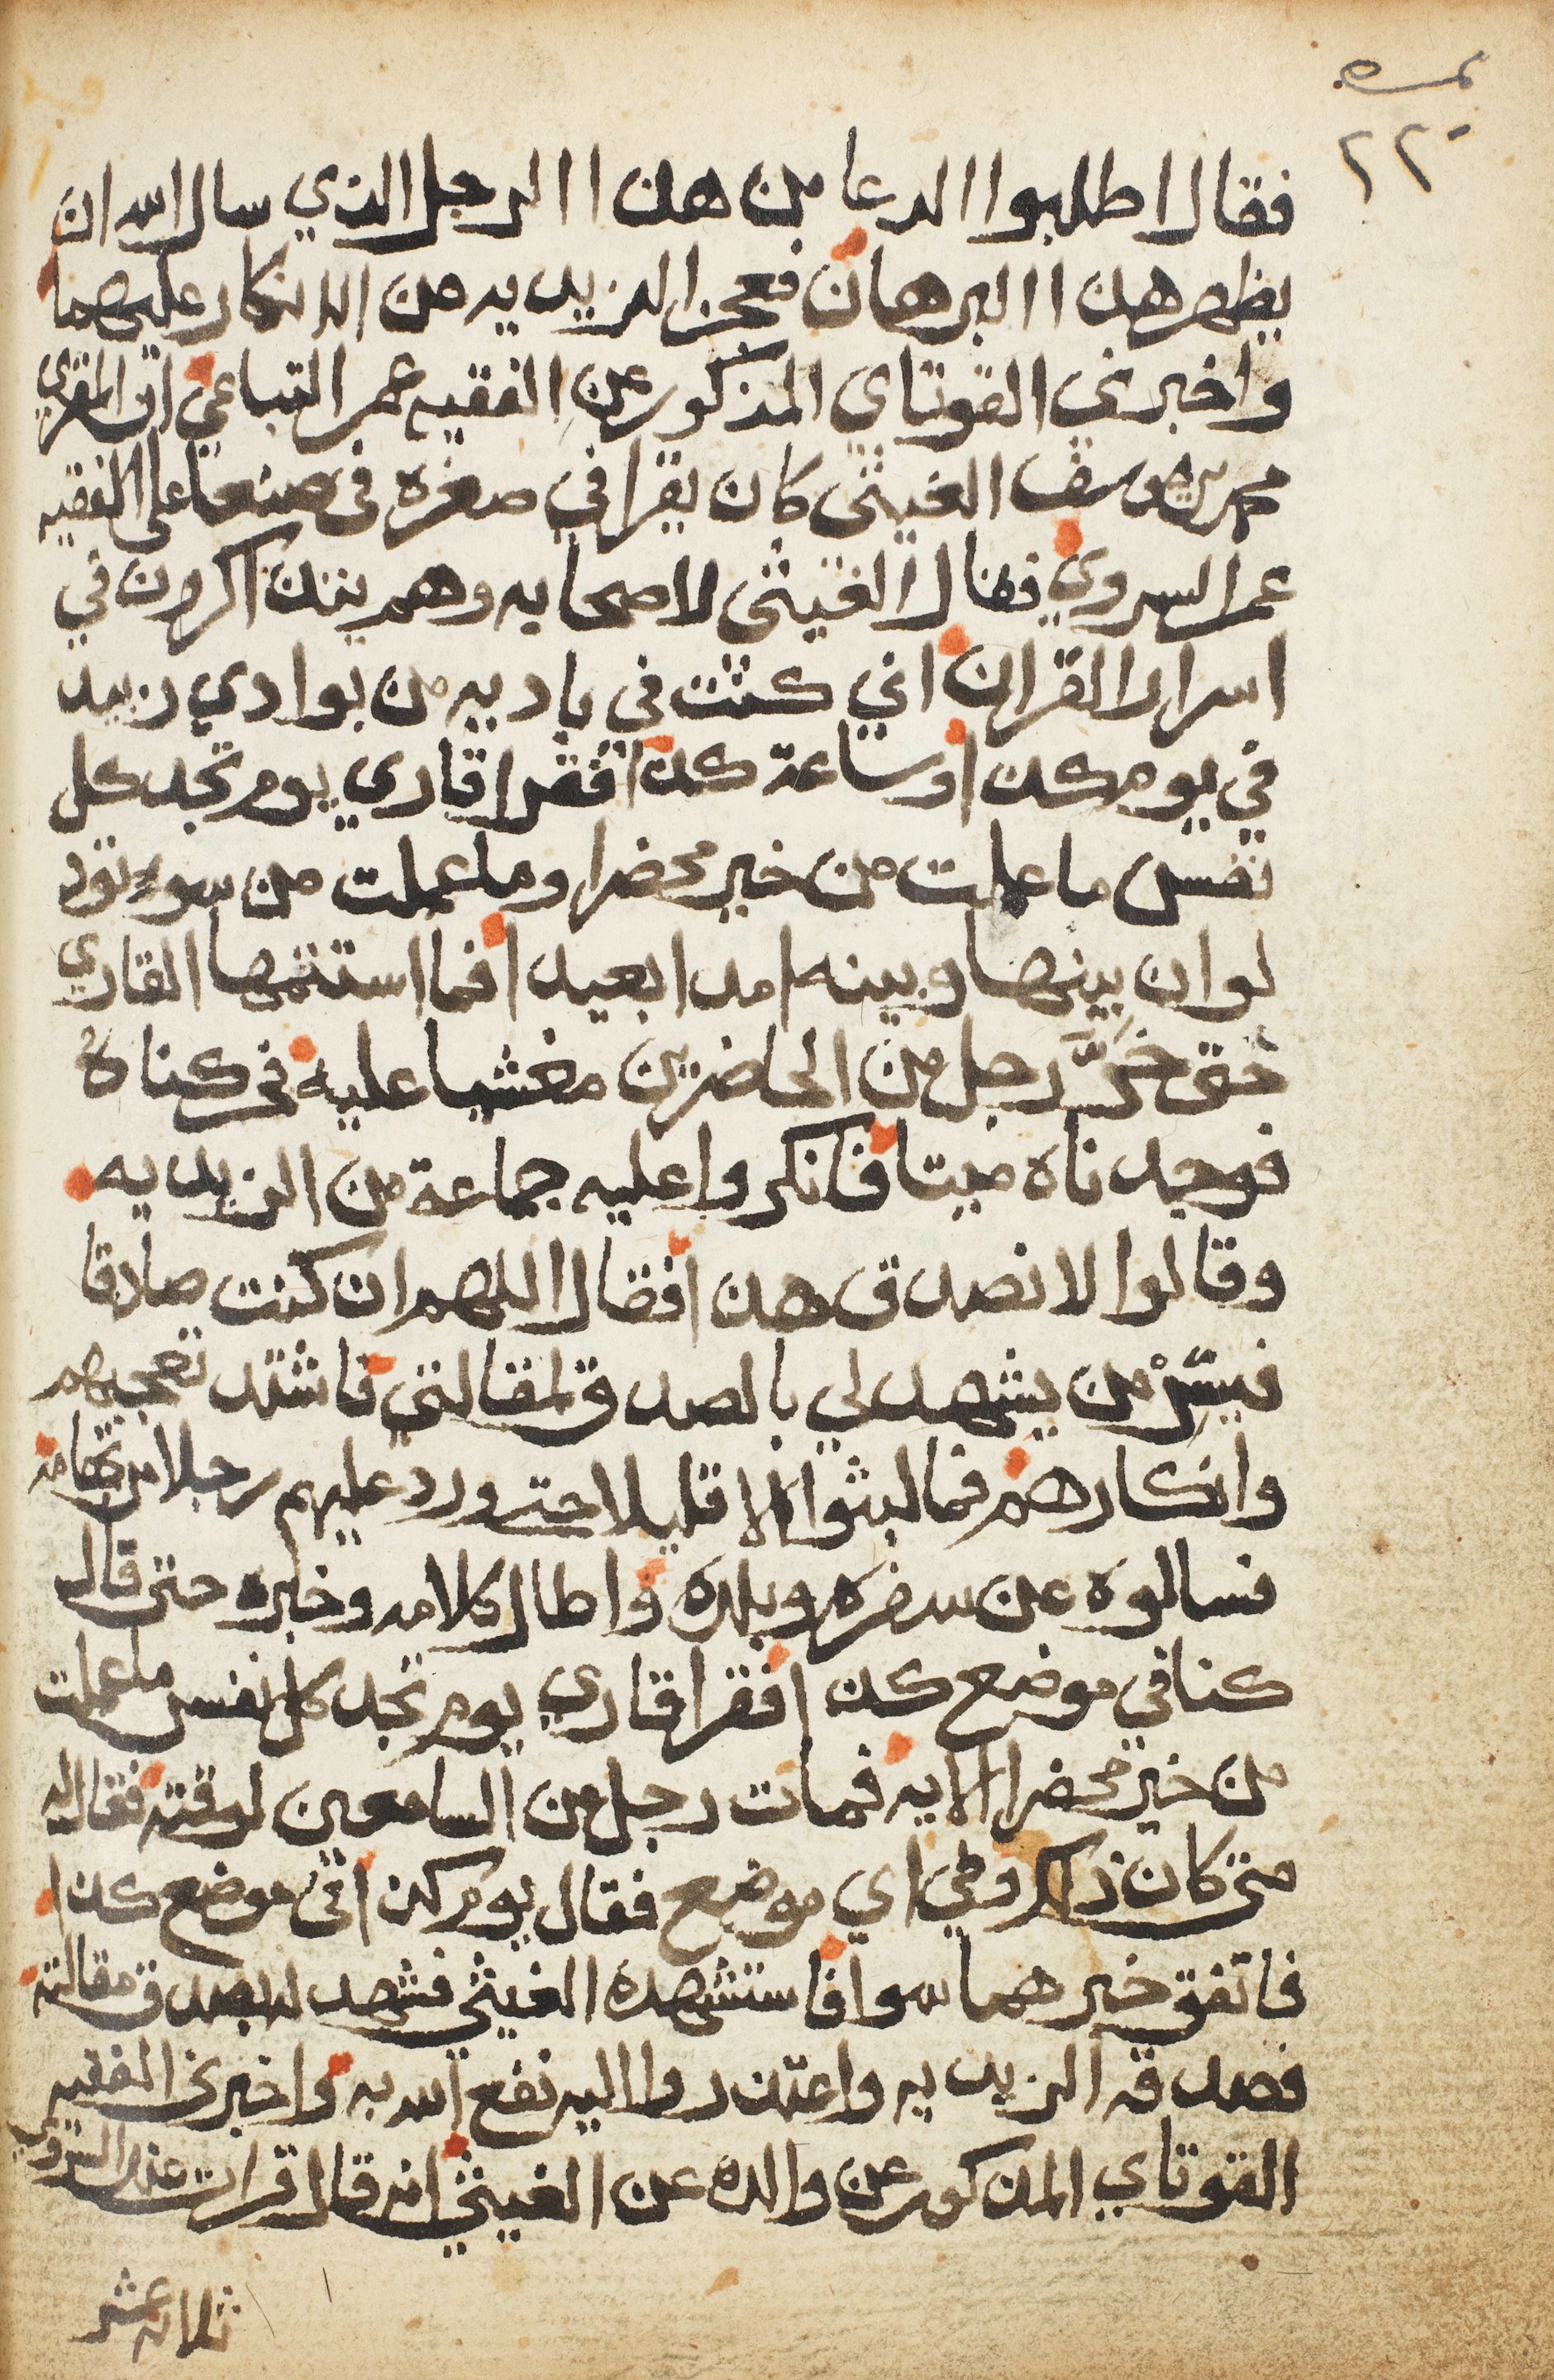 ٢٢٠
فقال اطلبوا الدعا من هذا الرجل الذي سال الله ان
يظهر هذا البرهان فعجز الزيديه من الانكار عليهما
واخبرني القوتاي المذكور عن الفقيه عمر التباعي ان المقري
محمد بن يوسف الغيثي كان يقرا في صغره في صنعا على الفقيه
عمر السروي فقال الغيثي لاصحابه وهم يتذاكرون في
اسرار القران اني كنت في باديه من بوادي زبيد
في يوم كذا وساعة كذا فقرا قاري يوم تجد كل
نفس ما عملت من خير محضرا وما عملت من سوء تود
لو ان بينها وبينه امدا بعيدا فما استتمها القاري
حتى خرّ رجل من الحاضرين مغشيا عليه فحركناه
فوجدناه ميتا فانكروا عليه جماعة من الزيديه
وقالوا لا نصدق هذا فقال اللهم ان كنت صادقا
فيسّرْ من يشهد لي بالصدق لمقالتي فاشتد تعجبهم
وانكارهم فما لبثوا الا قليلا حتى ورد عليهم رجلا من تهامه
فسالوه عن سفره وبلده واطال كلامه وخبره حتى قال
كنا في موضع كذا فقرا قاري يوم تجد كل نفس ما عملت
من خير محضرا الايه فمات رجل من السامعين لوقته فقال له
متى كان ذلك وفي اي موضع فقال يوم كذا في موضع كذا
فاتفق خبرهما سوا فاستشهده الغيثي فشهد له بصدق مقالته
فصدقه الزيديه واعتذروا اليه نفع الله به واخبرني الفقيه
القوتاي المذكور عن والده عن الغيثي انه قال قرات عند السروي
ثلاثه عشر